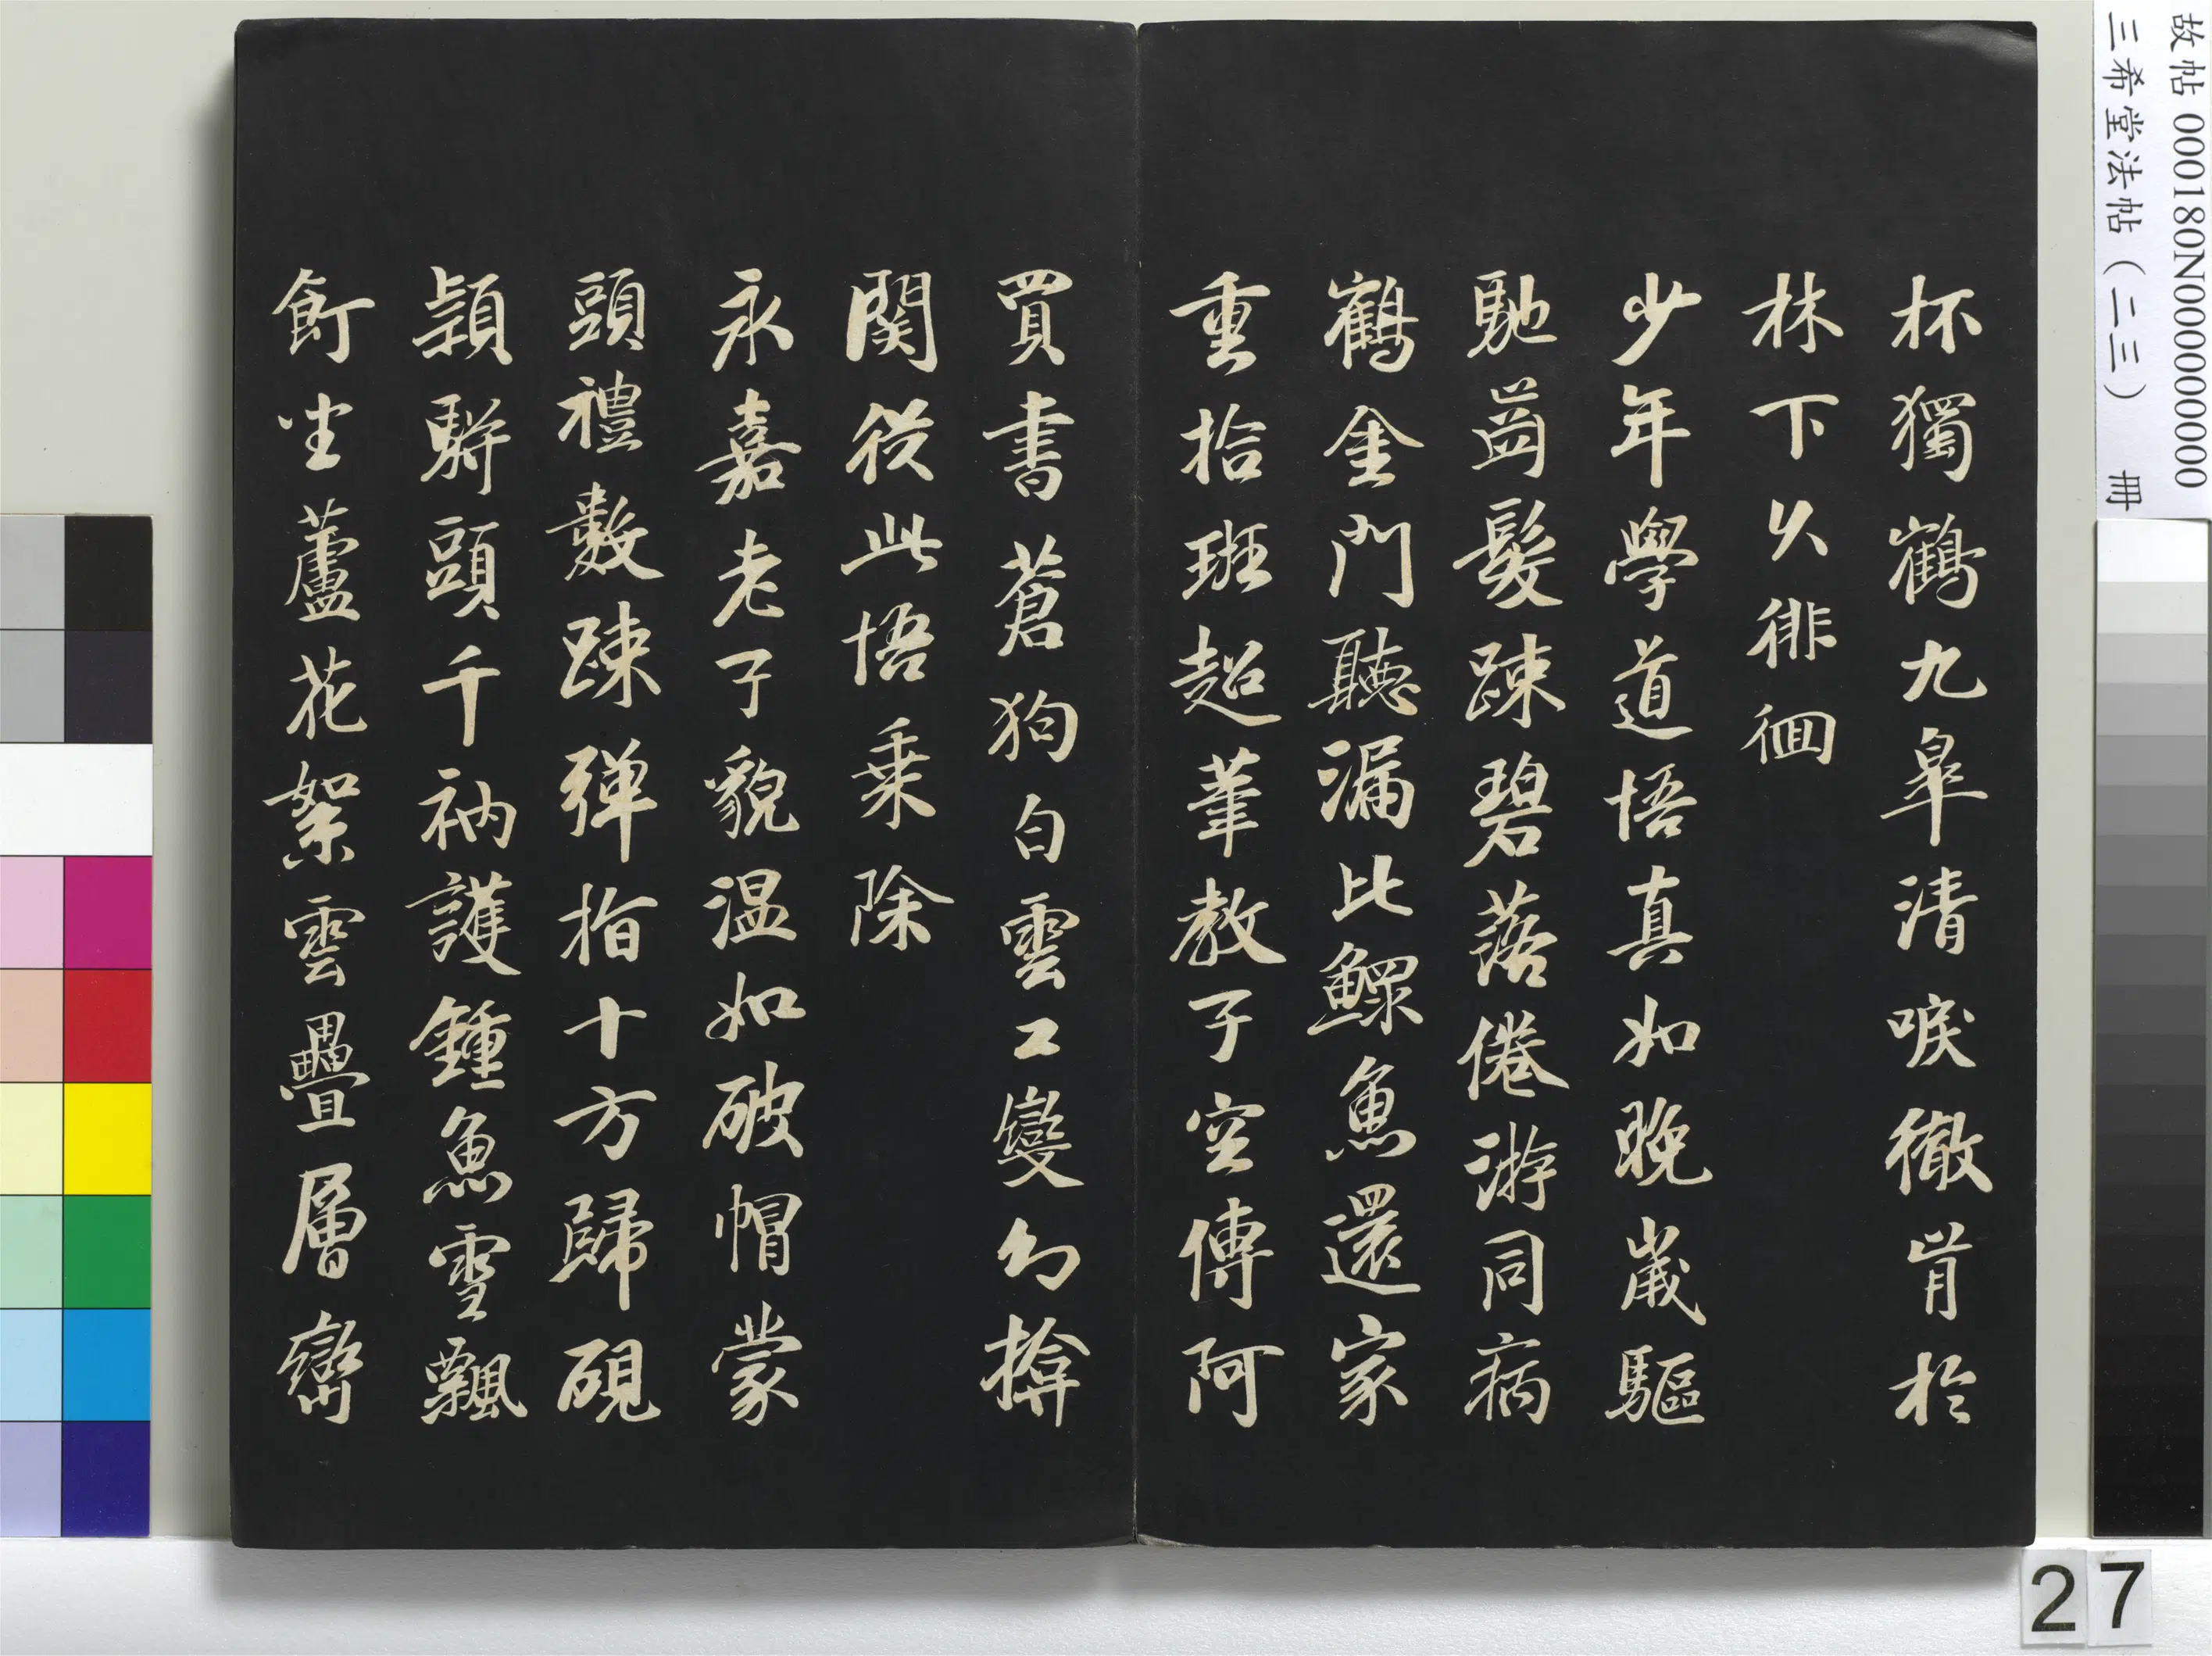 杯獨鶴九皐清唳徹肯於
林下久徘徊
少年學道悟真如晚歲驅
馳齒髮踈碧落倦游同病
鶴金門聽漏比鰥魚還家
重拾班超筆教子空傳阿
買書蒼狗白雲工變幻揜
関從此悟乗除
永嘉老子貌温如破帽蒙
頭禮數踈彈指十方歸硯
頴駢頭千衲護鍾魚雪飄
飣坐蘆花絮雲疊層巒
故帖 000180N000000000
三希堂法帖(二三) 冊
27